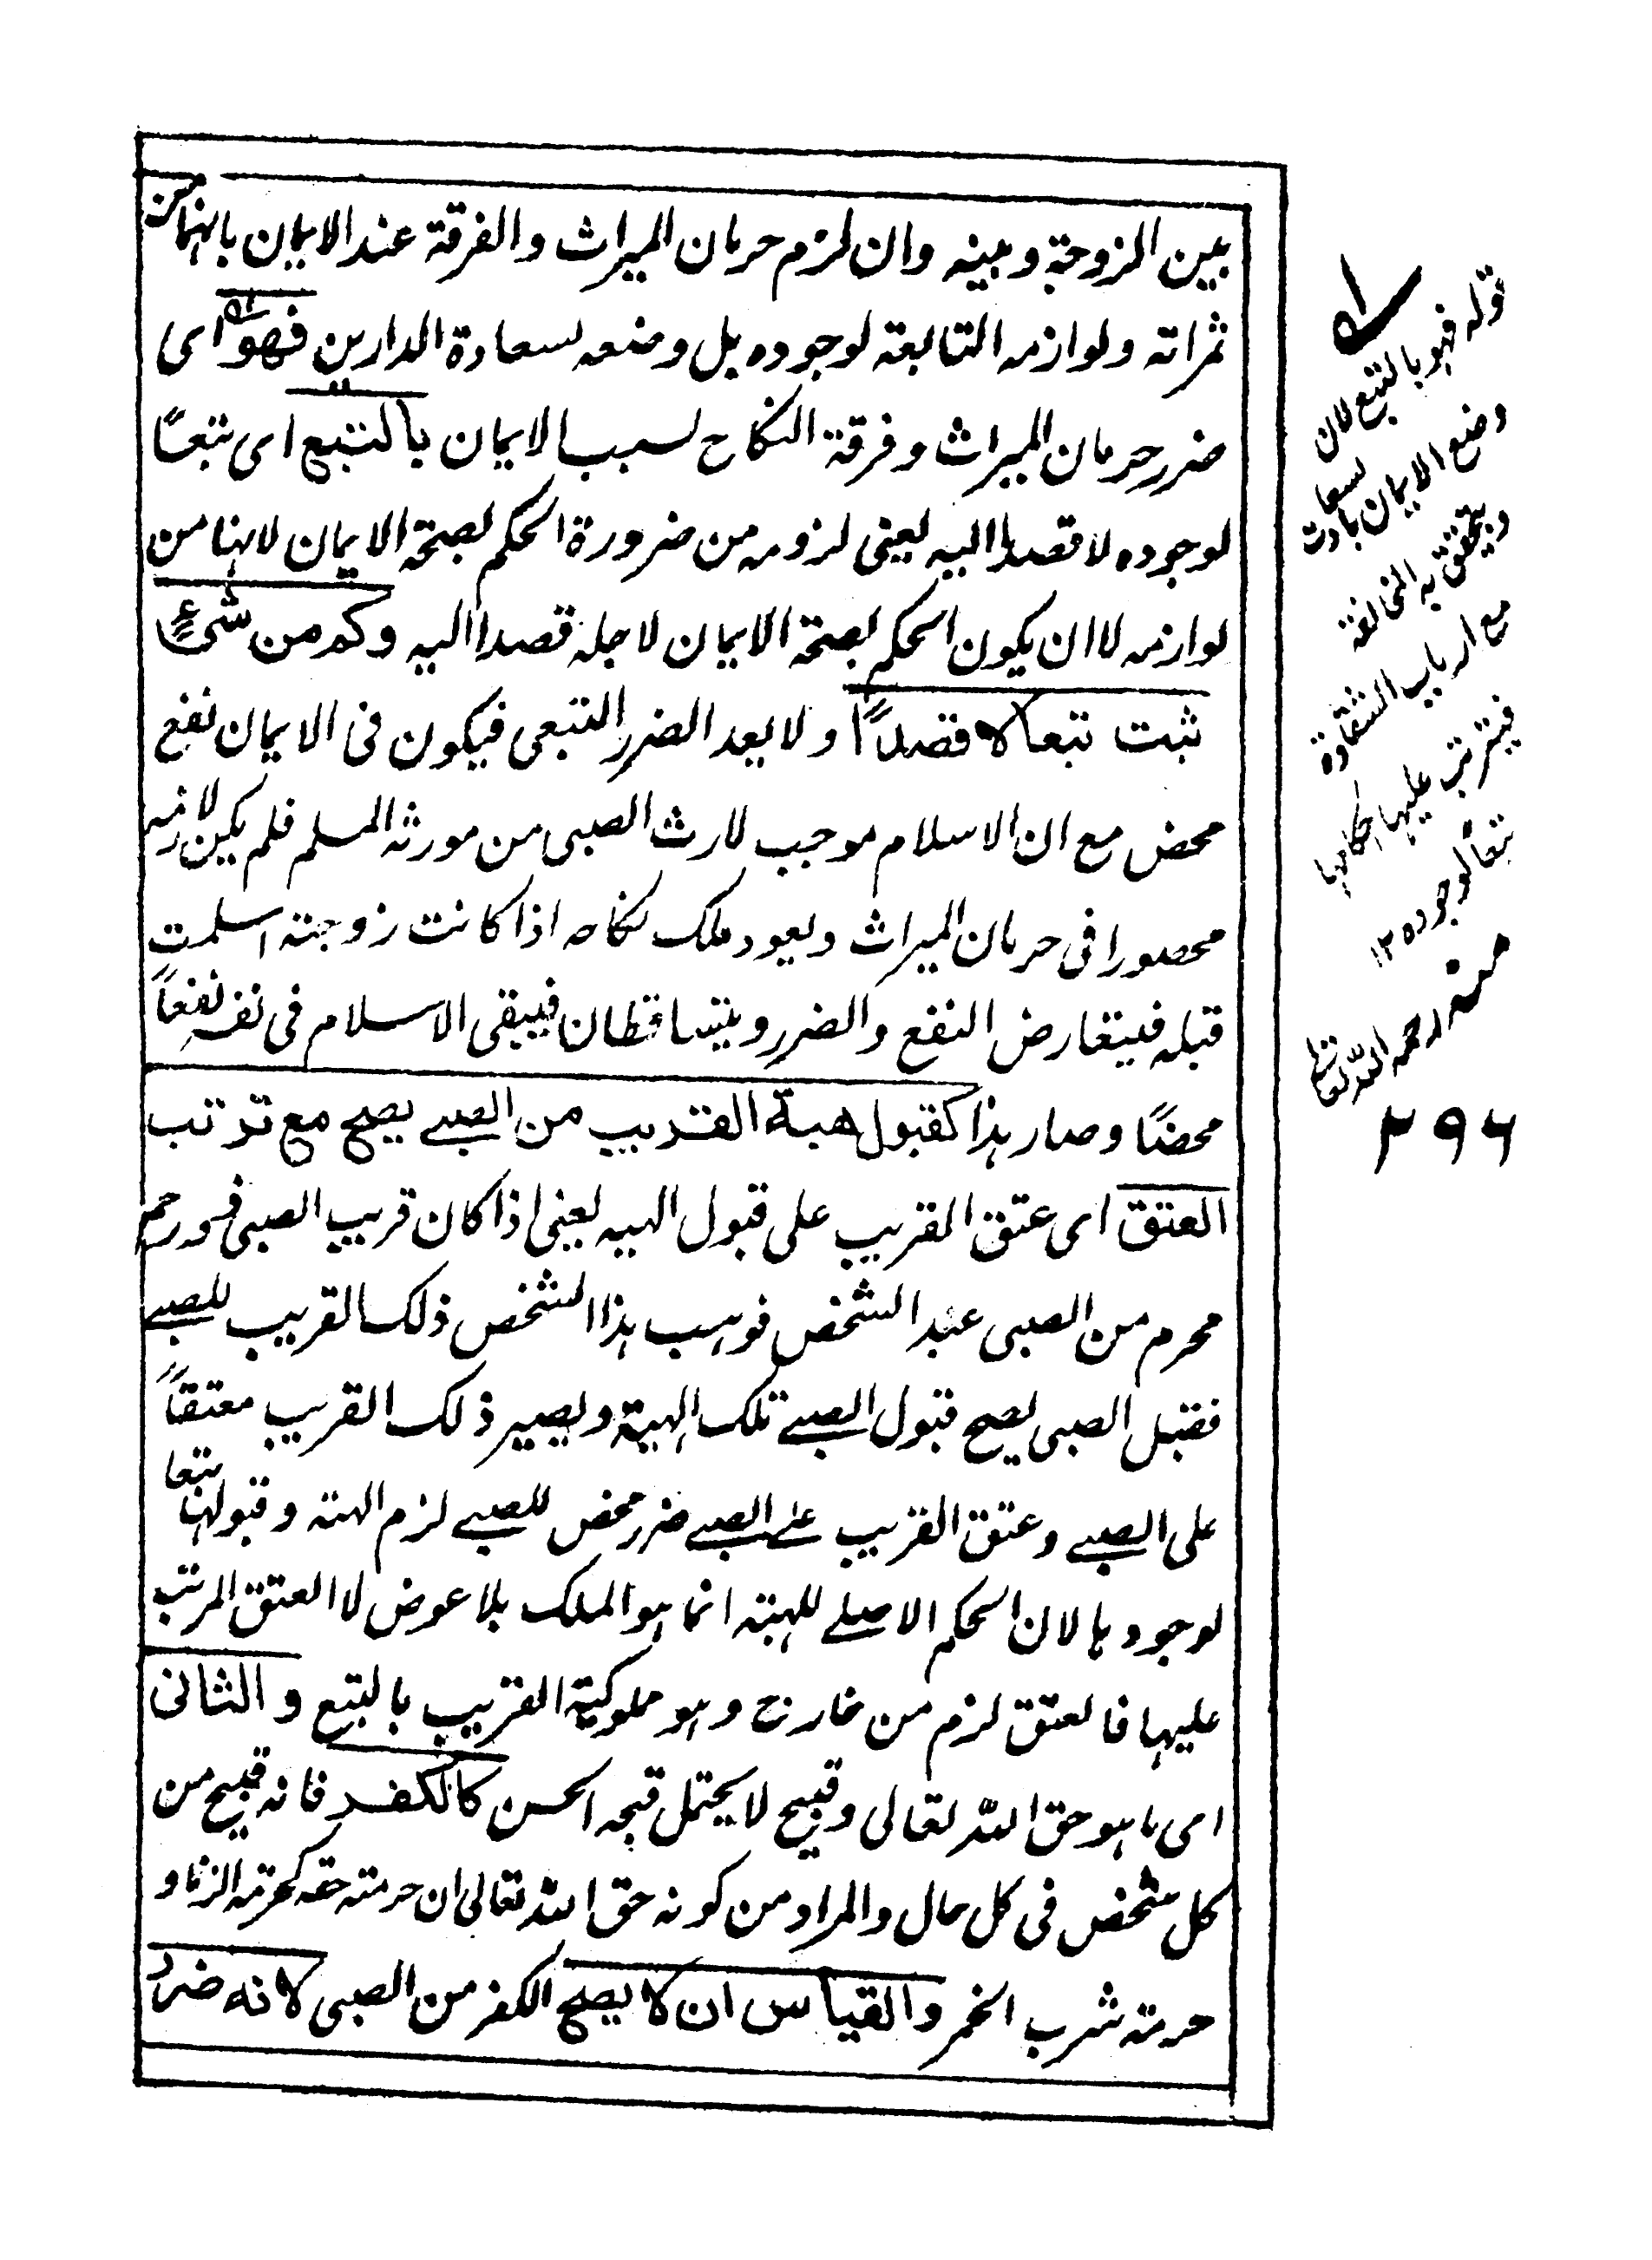 بين الزوجة وبينه وان لزم حرمان الميراث والفرقة عند الايمان بانهما من
ثمراته ولوازمه التابعة لوجوده بل وضعه لسعادة الدارين فهو اى
ضرر حرمان الميراث وفرقة النكاح بسبب الايمان بالتبع اى تبعًا
لوجوده لا قصدا اليه يعنى لزومه من ضرورة الحكم بصحة الايمان لانها من
لوازمه لا ان يكون الحكم بصحة الايمان لاجله قصدا اليه وكم من شىء
ثبت تبعا لا قصدًا ولا يعد الضرر التبعى فيكون فى الايمان نفع
محض مع ان الاسلام موجب لارث الصبى من مورثه المسلم فلم يكن لازمه
محصورا فى حرمان الميراث ويعود ملك نكاحه اذا كانت زوجته اسلمت
قبله فيتعارض النفع والضرر ويتساقطان فيبقى الاسلام فى نفسه نفعاً
محضًا وصار هذا كقبول هبة القريب من الصبى يصح مع ترتب
العتق اى عتق القريب على قبول الهبه يعنى اذا كان قريب الصبى ذو رحم
محرم من الصبى عبد الشخص فوهب هذا الشخص ذلك القريب للصبى
فقبل الصبى يصح قبول الصبى تلك الهبة ويصير ذلك القريب معتقاً
على الصبى وعتق القريب على الصبى ضرر محض للصبى لزم الهبته وقبولها تبعا
لوجودها لان الحكم الاصلى للهبته انما هو الملك بلا عوض لا العتق المرتب
عليها فالعتق لزم من خارج وهو مملوكية القريب بالتبع والثانى
اى ما هو حق الله تعالى وقبيح لا يحتمل قبحه الحسن كالكفر فانه قبيح من
كل شخص فى كل حال والمراد من كونه حق الله تعالى ان حرمته حقه كحرمة الزنا و
حرمته شرب الخمر والقياس ان لا يصح الكفر من الصبى لانه ضرر
قوله فهو بالتبع لان
وضع الايمان بالسعادت
ويتحقق به المخالفة
مع ارباب الشقاوة
فيترتب عليها احكامها
تبعًا لوجوده ١٢
منه رحمه الله تعالى
٢٩٦